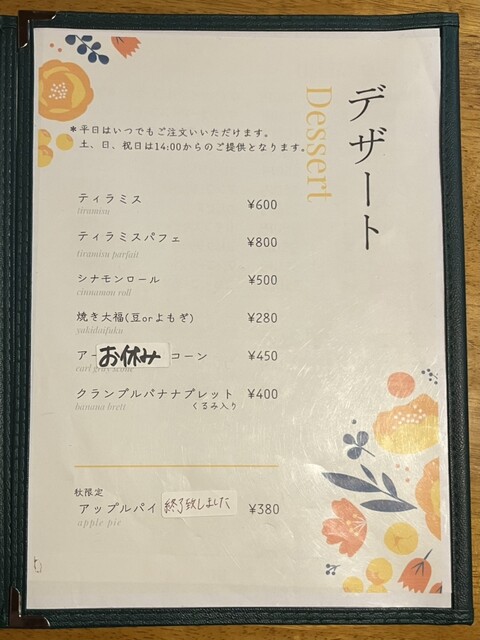 デザート
Dessert
*平日はいつでもご注文いただけます。
土、日、祝日は14:00からのご提供となります。
ティラミス ¥600
tiramisu
ティラミスパフェ ¥800
tiramisu parfait
シナモンロール ¥500
cinnamon roll
焼き大福(豆orよもぎ) ¥280
yakidaifuku
アー お休み コーン ¥450
earl grey scone
クランブルバナナブレット ¥400
くるみ入り
banana brett
秋限定
アップルパイ 終了致しました ¥380
apple pie